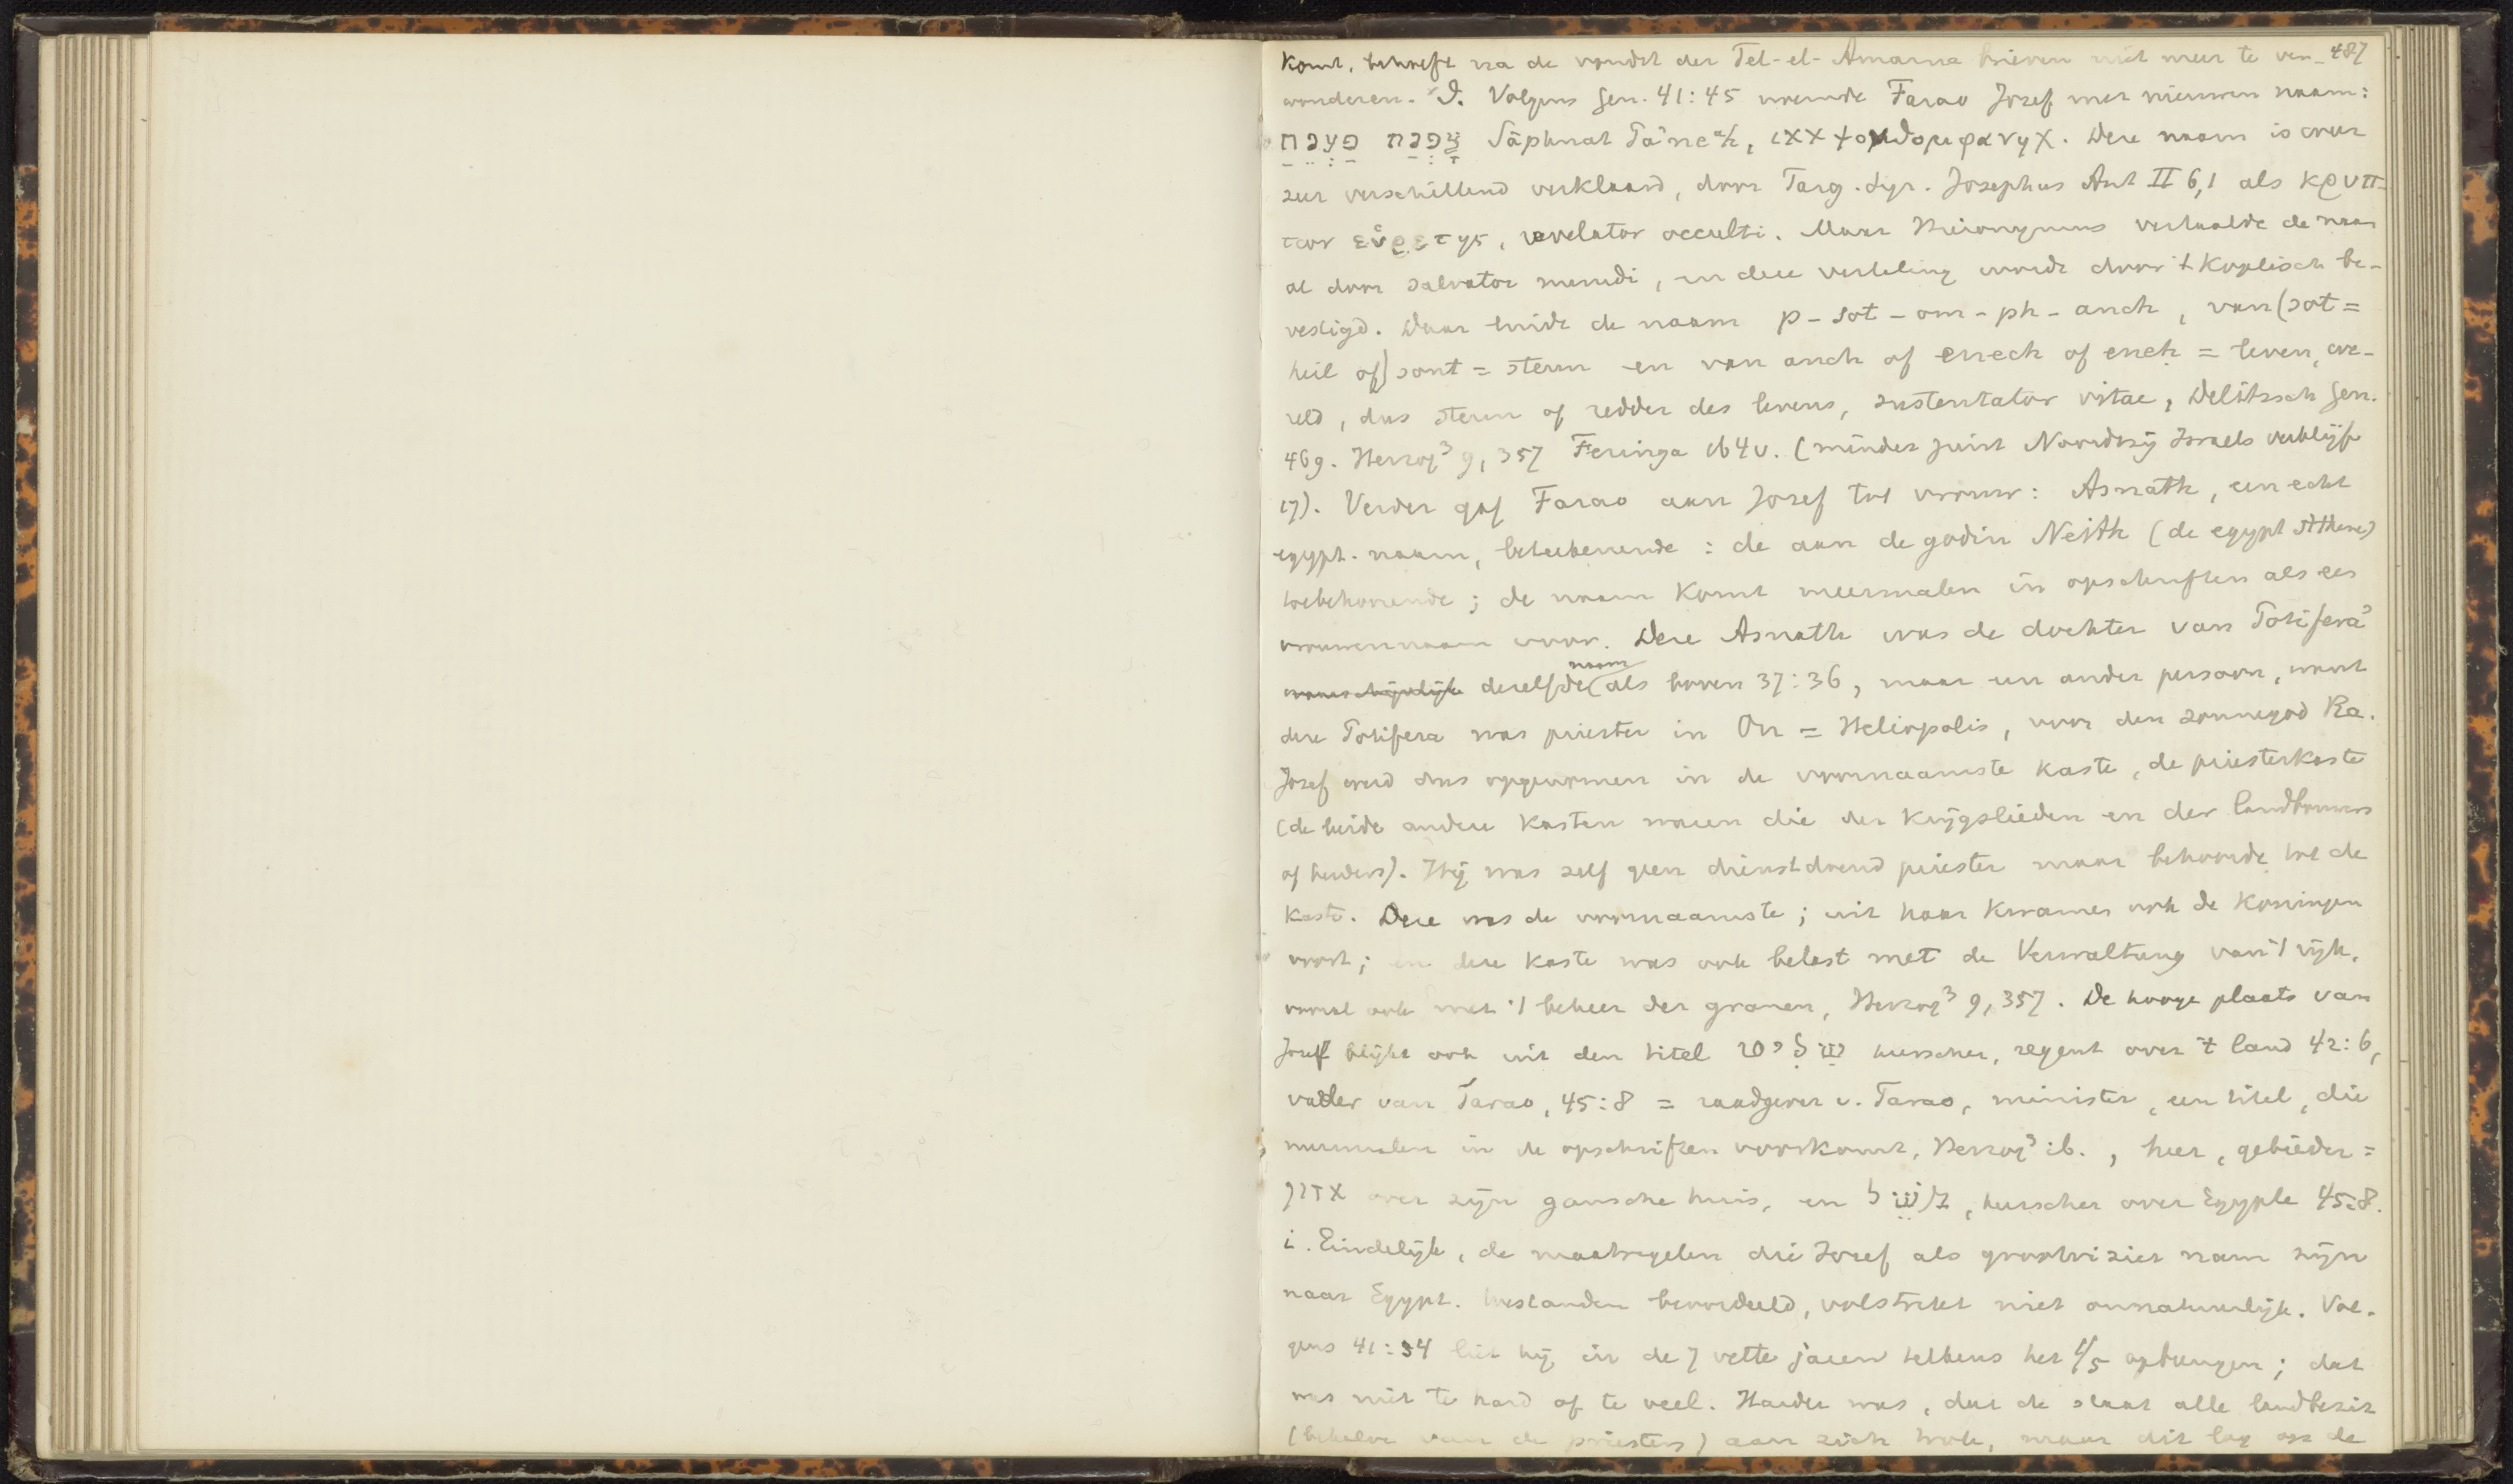 komt, behoeft na de vondst der Tel-el-Amarna brieven niet meer te ver- 487
wonderen. d. Volgens Gen. 41:45 noemde Farao Jozef met nieuwen naam:
צָפְנַת פַּעְנֵחַ Sāphnat Pa'neaḥ, LXX ψονθομφανηχ. Deze naam is weer
zeer verschillend verklaard, door Targ. Syr. Josephus Ant II 6,1 als κρυπ-
των εὑρετης, revelator occulti. Maar Hieronymus vertaalde de naam
al door salvator mundi, en deze vertaling wordt door 't Koptisch be-
vestigd. Daar luidt de naam p-sot-om-ph-anch, van (sot =
heil of) sont = steun en van anch of enech of eneh = leven, we-
reld, dus steun of redder des levens, sustentator vitae, Delitzsch Gen.
469. Herzog³ 9,357 Feringa 164v. (minder juist Noordtzij Israels verblijf
17). Verder gaf Farao aan Jozef tot vrouw: Asnath, een echt
egypt. naam, beteekenende: de aan de godin Neith (de egypt Athene)
toebehoorende; de naam komt meermalen in opschriften als een
vrouwennaam voor. Deze Asnath was de dochter van Potifera
waarschijnlijk dezelfde naam als boven 37:36, maar een ander persoon, want
deze Potifera was priester in On = Heliopolis, voor den zonnegod Ra.
Jozef werd dus opgenomen in de voornaamste kaste, de priesterkaste
(de beide andere kasten waren die der krijgslieden en der landbouwers
of herders). Hij was zelf geen dienstdoend priester maar behoorde tot de
kaste. Deze was de voornaamste; uit haar kwamen ook de koningen
voort; en deze kaste was ook belast met de Verwaltung van 't rijk,
vooral ook met 't beheer der granen, Herzog³ 9,357. De hooge plaats van
Jozef blijkt ook uit den titel שַׁלִּיט heerscher, regent over 't land 42:6,
vader van Farao, 45:8 = raadgever v. Farao, minister, een titel, die
meermalen in de opschriften voorkomt, Herzog³ ib., heer, gebieder =
אדון over zijn gansche huis, en מֹשֵׁל, heerscher over Egypte 45:8.
i. Eindelijk, de maatregelen die Jozef als grootvizier nam zijn
naar Egypt. toestanden beoordeeld, volstrekt niet onnatuurlijk. Vol-
gens 41:34 liet hij in de 7 vette jaren telkens het 1/5 opbrengen; dat
was niet te hard of te veel. Harder was, dat de staat alle landbezit
(behalve van de priesters) aan zich trok, maar dit lag op de